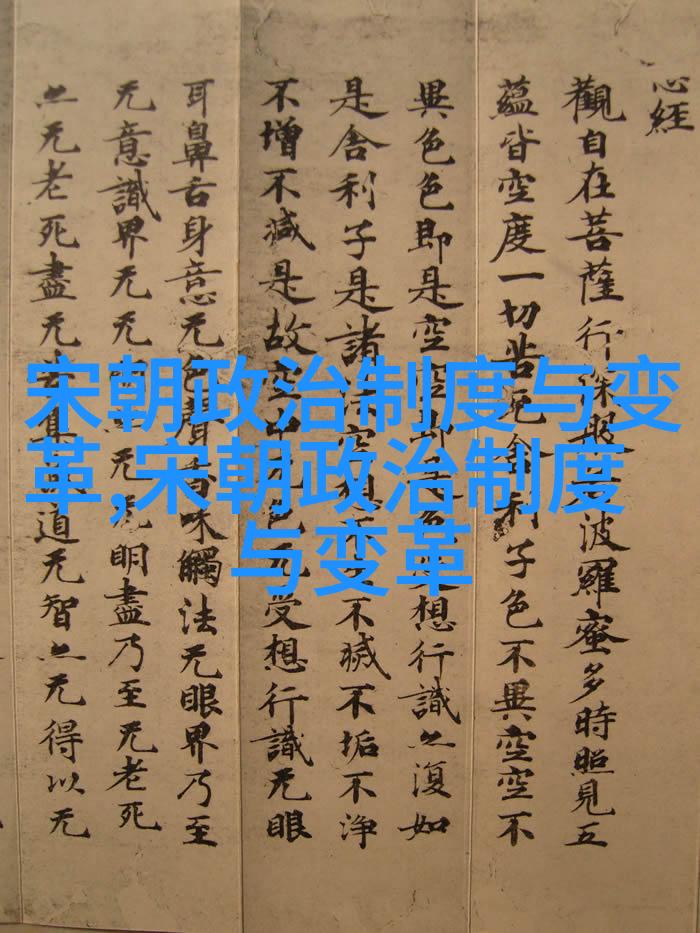 心経
觀自在菩薩行深般波羅蜜多時照見五
蘊皆空度一切苦厄舍利子色不異空空不
異色色即是空空即色受想行識亠復如
是舍利子是諸法空想不不滅不垢不淨
不增不減是故空中色无受想行識无眼
耳鼻舌身意无色聲香味觸法无眼界乃至
无意識界无无明亠无无明盡乃至无老死
亠无老死盡无苦集道无智亠无得以无
宋朝政治制度与变
革,宋朝政治制度
与变革